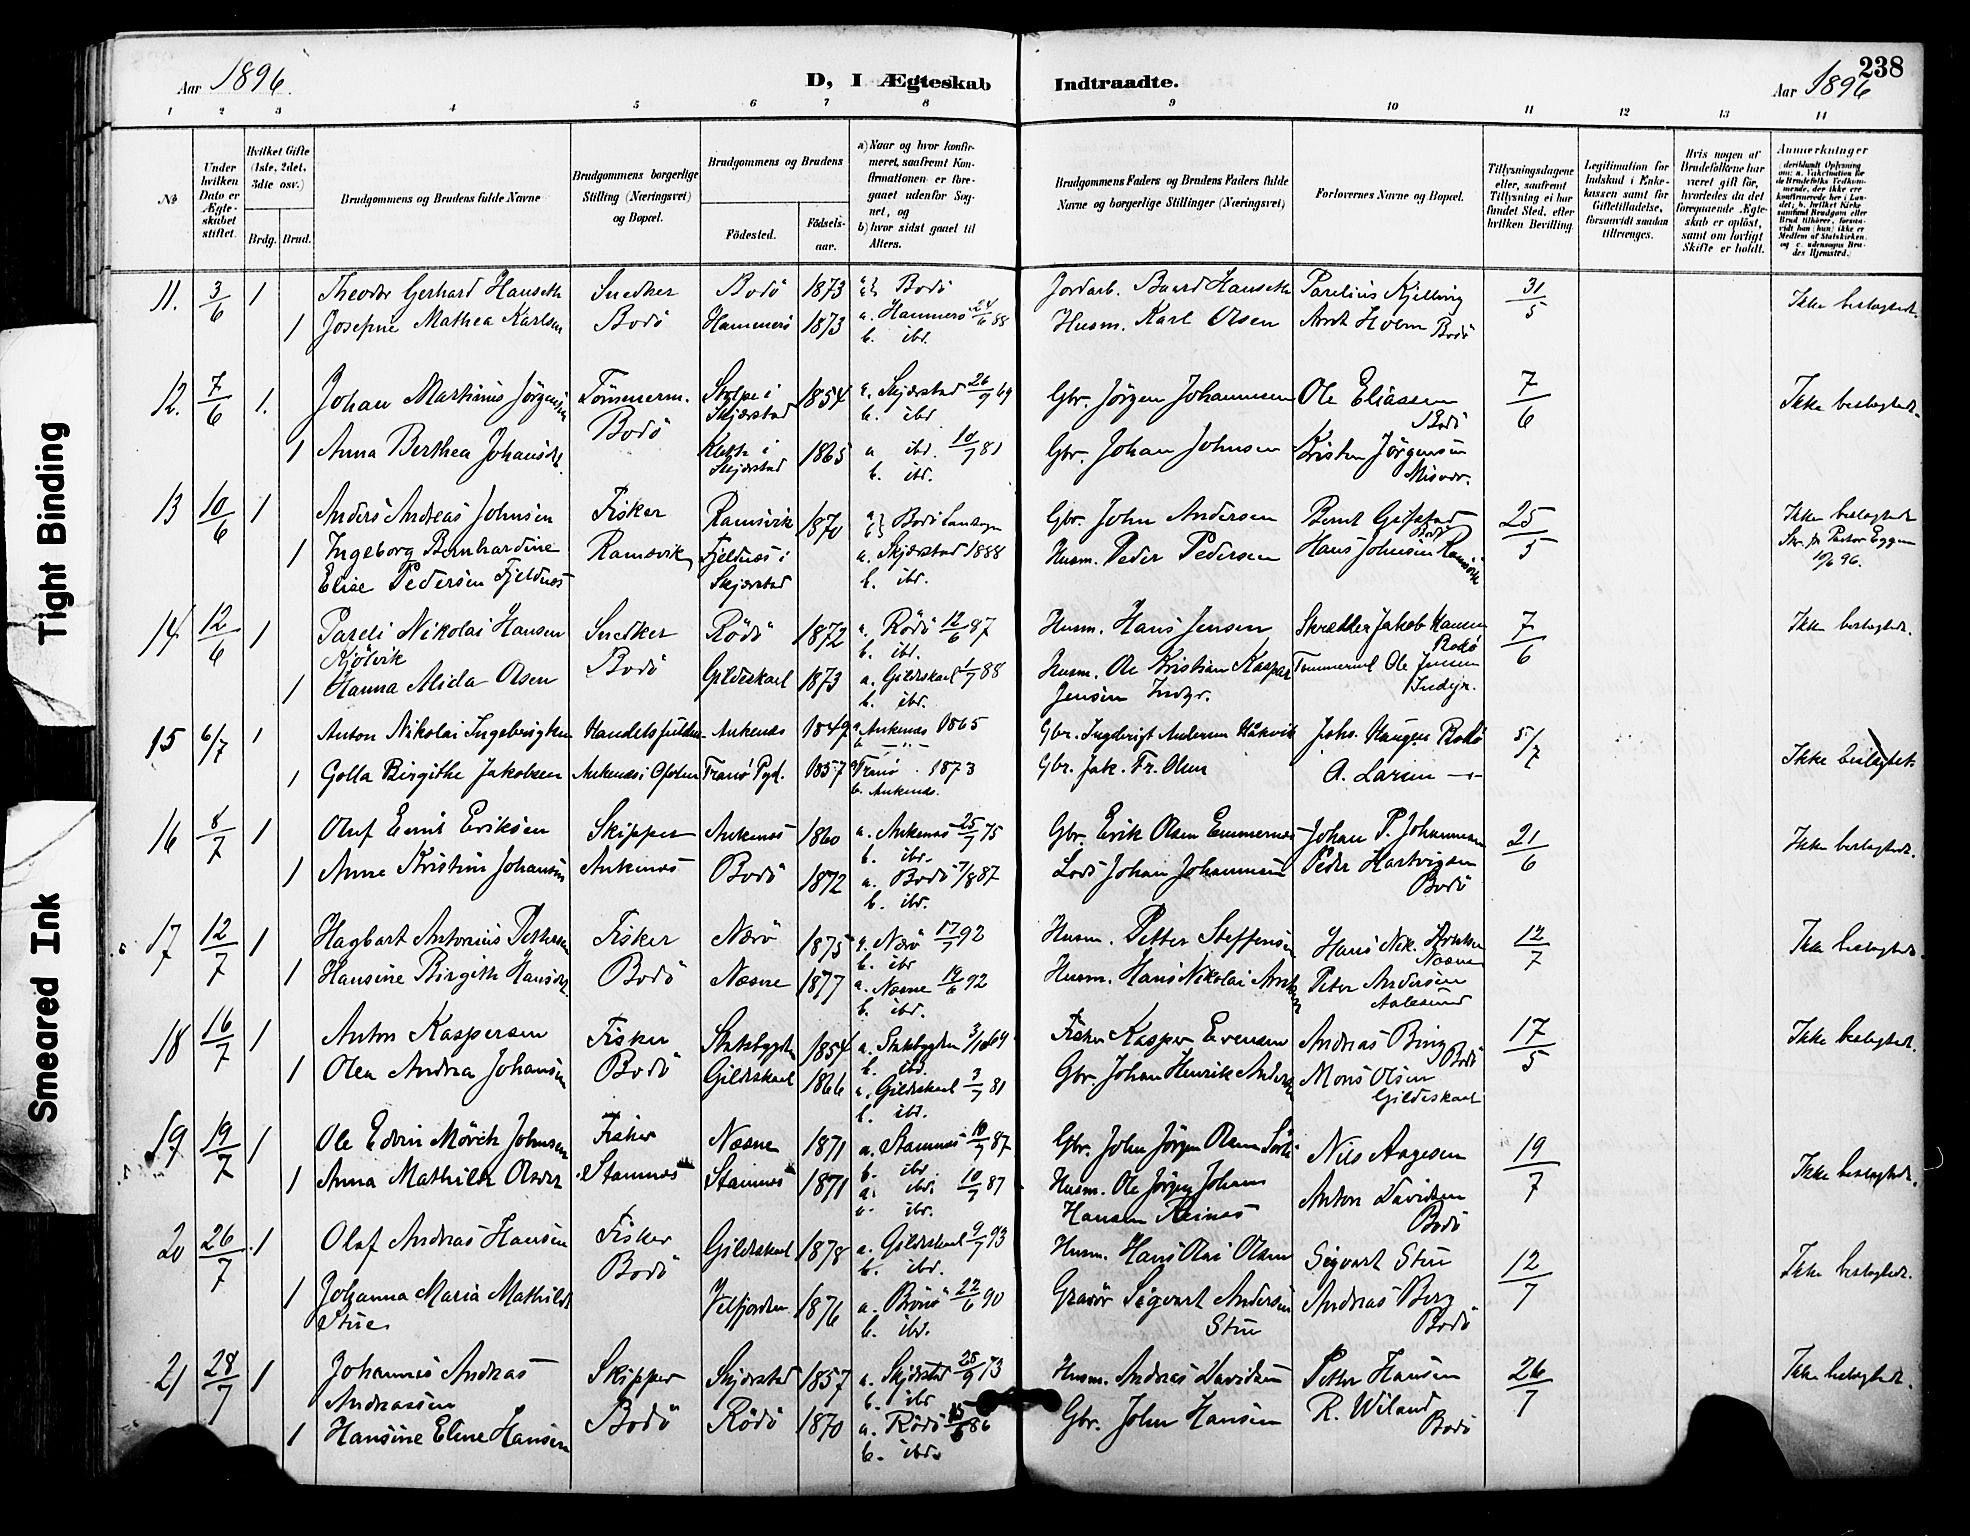 Tight Binding
Smeared Ink
238
Aar 1896.
D, I Ægteskab
Indtraadte.
Aar 1896
1 2 3 4 5 6 7 8 9 10 11 12 13 14
№
Under hvilken Dato er Ægteskabet stiftet.
Hvilket Gifte (1ste, 2det, 3die osv.)
Brdg. Brud.
Brudgommens og Brudens fulde Navne
Brudgommens borgerlige Stilling (Næringsvei) og Bopæl.
Brudgommens og Brudens
Fødested.
Fødselsaar.
a) Naar og hvor konfirmeret, saafremt Konfirmationen er foregaaet udenfor Sognet, og
b) hvor sidst gaaet til Alters.
Brudgommens Faders og Brudens Faders fulde Navne og borgerlige Stillinger (Næringsvei)
Forlovernes Navne og Bopæl.
Tillysningsdagene eller, saafremt Tillysning ei har fundet Sted, efter hvilken Bevilling.
Legitimation for Indskud i Enkekassen samt for Giftetilladelse, forsaavidt saadan tiltrænges.
Hvis nogen af Brudefolkene har været gift før, hvorledes da det foregaaende Ægteskab er opløst, samt om lovligt Skifte er holdt.
Anmærkninger
11. 3/6 1 Theodor Gerhard Hanseth Snedker Bodö 1873 a. b. Bodö Jordarb. Baard Hanseth Parelius Kjelling 31/5 Ikke beslægtet.
1 Josefine Mathea Karlsen Bodö Hammerö 1873 a. Hammerö 24/6 88 b. ibd. Husm. Karl Olsen Arnt Holm Bodö
12. 7/6 1. Johan Martinus Jörgensen Tömmerm. Bodö Skjærstad 1854 a. Skjærstad 26/9 69 b. ibd Gbr. Jörgen Johannesen Ole Eliassen Bodö 7/6 Ikke beslægtet.
1 Anna Berthea Johansdt. Skjærstad 1865 a ibd. 10/7 81 b. ibd. Gbr. Johan Johnsen Kristen Jörgensen Misvær.
13 10/6 1 Anders Andreas Johnsen Fisker Ramsvik 1870 a. b. Bodö Landsogn Gbr. John Andersen Bernt Gjestad Bodö 25/5 Ikke beslægtet
1 Ingeborg Bernhardine Ramsvik Fjeldnes i a. Skjærstad 1888 Husm. Peder Pedersen Hans Johnsen Ramsvik Skr. fr Pastor Eggen
Elise Pedersen Fjeldnes Skjærstad b. ibd. 10/6 96.
14 12/6 1 Pareli Nikolai Hansen Snedker Rödö 1872 a. Rödö 12/6 87 b. ibd. Husm. Hans Jensen Skrædder Jakob Hansen Bodö 7/6 Ikke beslægtet.
Kjölvik
1 Hanna Alida Olsen Bodö Gildeskaal 1873 a. Gildeskaal 1/7 88 b. ibd. Husm. Ole Kristian Kasper Tømmerm. Ole Jensen
Jensen Indyr. Indyr.
15 6/7 1 Anton Nikolai Ingebrigtsen Ankenes 1849 a. Ankenes 1865 Gbr. Ingebrigt Andersen Håkvik Johs. Haugen Bodö 5/7 Ikke beslægtet
1 Golla Birgithe Jakobsen Ankenes i Ofoten Tranö Pgd. 1857 a Tranö 1873 b. Ankenes. Gbr. Jak. Fr. Olsen A. Larsen —
16 8/7 1 Oluf Emil Eriksen Skipper Ankenes 1860 a. Ankenes 25/7 75 b. ibd. Gbr. Erik Olsen Emmernes Johan P. Johannesen 21/6 Ikke beslægtet.
1 Anne Kristine Johansen Ankenes Bodö 1872 a. Bodö 7/8 87 b. ibd. Lods Johan Johannesen Peder Hartvigsen Bodö
17 12/7 1 Hagbart Antonius Pettersen Fisker Nærö 1875 a. Nærö 17/7 92 b. ibd Husm. Petter Steffensen Hans Nik. Arntsen Nesne 12/7 Ikke beslægtet.
1 Hansine Birgith Hansdt. Bodö Nesne 1877 a. Nesne 19/6 92 b. ibd. Husm. Hans Nikolai Arntsen Peter Andersen Aalesund
18 16/7 1 Anton Kaspersen Fisker Stadsbygden 1854 a. Stadsbygden 3/10 69 b. ibd. Fisker Kasper Evensen Andreas Bing Bodö 17/5 Ikke beslægtet.
1 Olea Andrea Johansen Bodö Gildeskaal 1866 a. Gildeskaal 3/7 81 b. ibd. Gbr. Johan Henrik Andersen Mons Olsen Gildeskaal
19 19/7 1 Ole Edvin Mörch Johnsen Fisker Nesne 1871 a. Stamnes 10/7 87 b. ibd. Gbr. John Jörgen Olsen Nils Aagesen 19/7 Ikke beslægtet.
1 Anna Mathilde Olsdt. Stamnes Stamnes 1871 a. ibd. 10/7 87 b. ibd. Husm. Ole Jörgen Johans Anton Davidsen Bodö
Hansen Reines
20 26/7 1 Olaf Andreas Hansen Fisker Bodö Gildeskaal 1878 a. Gildeskaal 9/7 93 b. ibd. Husm. Hans Olai Olsen Sigvart Stue 12/7 Ikke beslægtet.
1 Johanna Maria Mathilde Stue Velfjorden 1876 a. Brönö 22/6 90 b. ibd. Sigvart Andersen Stue Andreas Berg Bodö
21 28/7 1 Johannes Andreas Andreassen Skipper Skjærstad 1857 a. Skjærstad 28/9 73 b. ibd Husm. Andreas Davidsen Peter Hansen 26/7 Ikke beslægtet.
1 Hansine Eline Hansen Bodö Rödö 1870 a. Rödö 15/6 86 b. ibd. Gbr. John Hansen R. Wiland Bodö